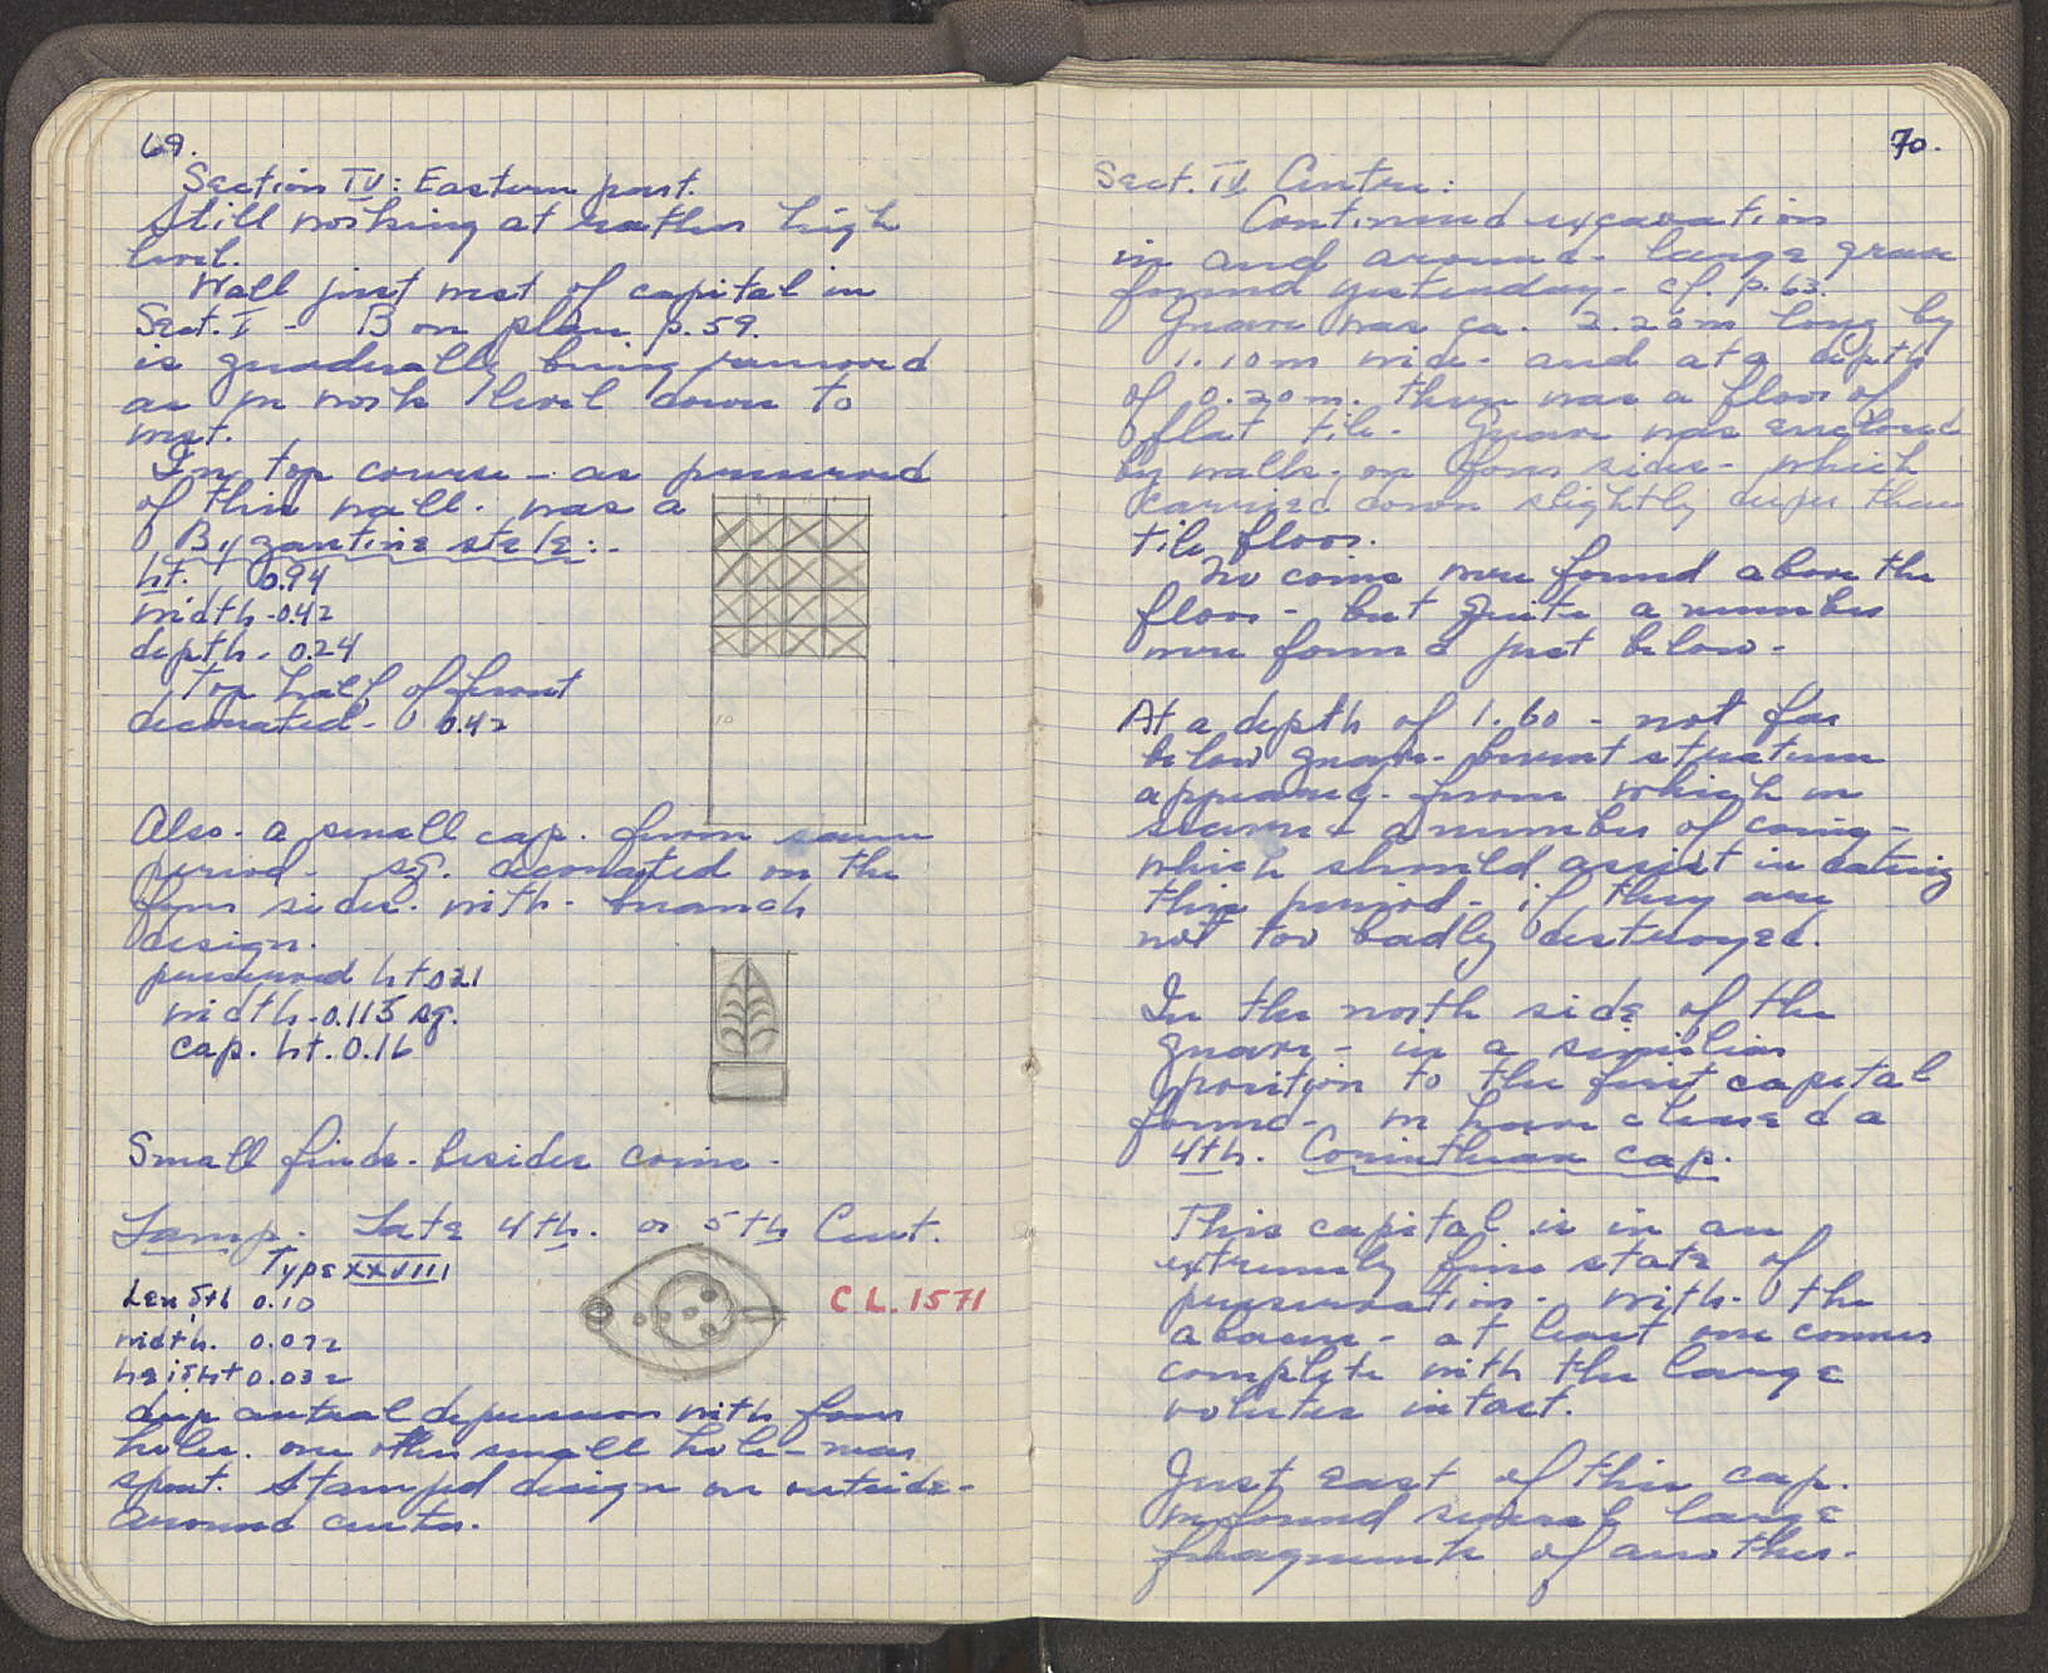 69.
Section IV: Eastern part.
Still working at rather high
level.
Wall just west of capital in
Sect. I - B on plan p. 59.
is gradually being removed
as we work level down to
west.
In top course - as preserved
of this wall. was a
Byzantine stele:-
ht. 0.94
width - 0.42
depth - 0.24
Top half of front
decorated - 0.42
10
Also - a small cap. from same
period - sq. decorated on the
four sides. with - branch
design.
preserved ht 0.21
width - 0.115 sq.
cap. ht. 0.16
Small finds. besides coins -
Lamp. Late 4th. or 5th Cent.
Type XXVIII
Length 0.10
CL. 1571
width. 0.072
height 0.032
deep central depression with four
holes. one other small hole - near
spout. Stamped design on outside -
around center.
70.
Sect. IV Center:
Continued excavation
in and around - large grave
found yesterday - cf. p. 63.
Grave was ca. 2.20m long by
1.10m wide - and at a depth
of 0.20m. there was a floor of
flat tile - Grave was enclosed
by walls - on four sides - which
carried down slightly deeper than
tile floor.
No coins were found above the
floor - but quite a number
were found just below -
At a depth of 1.60 - not far
below grave - burnt stratum
appeared - from which we
secured a number of coins -
which should assist in dating
this period - if they are
not too badly destroyed.
In the north side of the
grave - in a similiar
position to the first capital
found - we have cleared a
4th. Corinthian cap.
This capital is in an
extremely fine state of
preservation - with - the
abacus - at least one corner
complete with the large
volutes intact.
Just east of this cap.
we found several large
fragments of another -